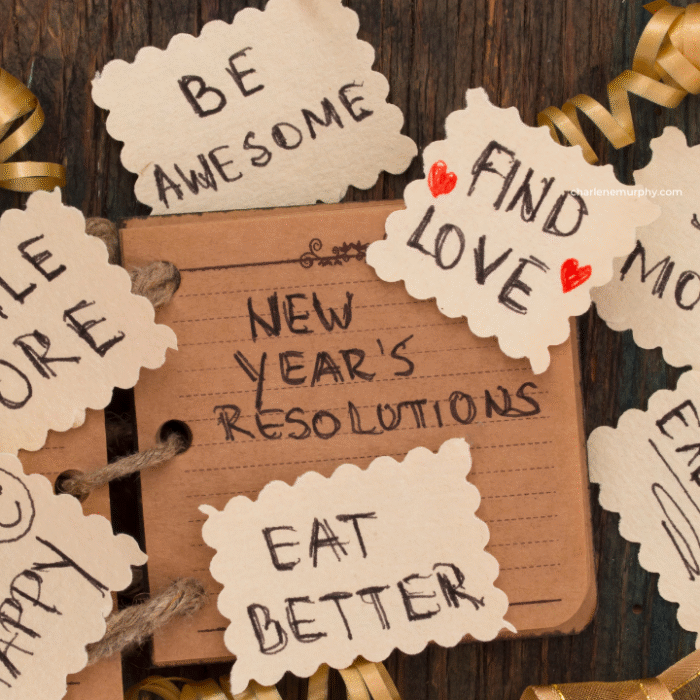 BE
AWESOME
FIND
LOVE
charlenemurphy.com
NEW
YEAR'S
RESOLUTIONS
EAT
BETTER